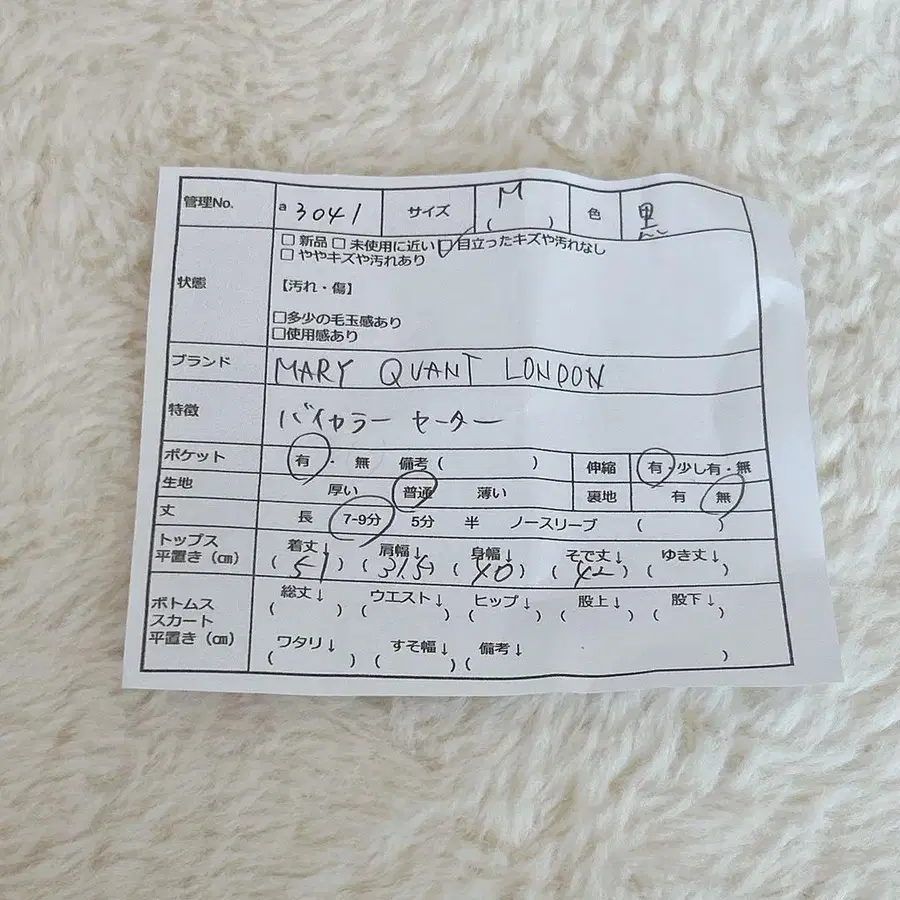 管理No. a 3041 サイズ M ( ) 色 黒
状態 □ 新品 □ 未使用に近い ☑ 目立ったキズや汚れなし
□ ややキズや汚れあり
【汚れ・傷】
□多少の毛玉感あり
□使用感あり
ブランド MARY QUANT LONDON
特徴 バイカラー セーター
ポケット 有 ・ 無 備考 ( ) 伸縮 有・少し有・無
生地 厚い 普通 薄い 裏地 有 無
丈 長 7-9分 5分 半 ノースリーブ ( )
トップス 着丈↓ 肩幅↓ 身幅↓ そで丈↓ ゆき丈↓
平置き(㎝) (51) (31.5) (40) (42) ( )
ボトムス 総丈↓ ウエスト↓ ヒップ↓ 股上↓ 股下↓
スカート ( ) ( ) ( ) ( ) ( )
平置き(㎝) ワタリ↓ すそ幅↓ 備考↓
( ) ( ) ( )